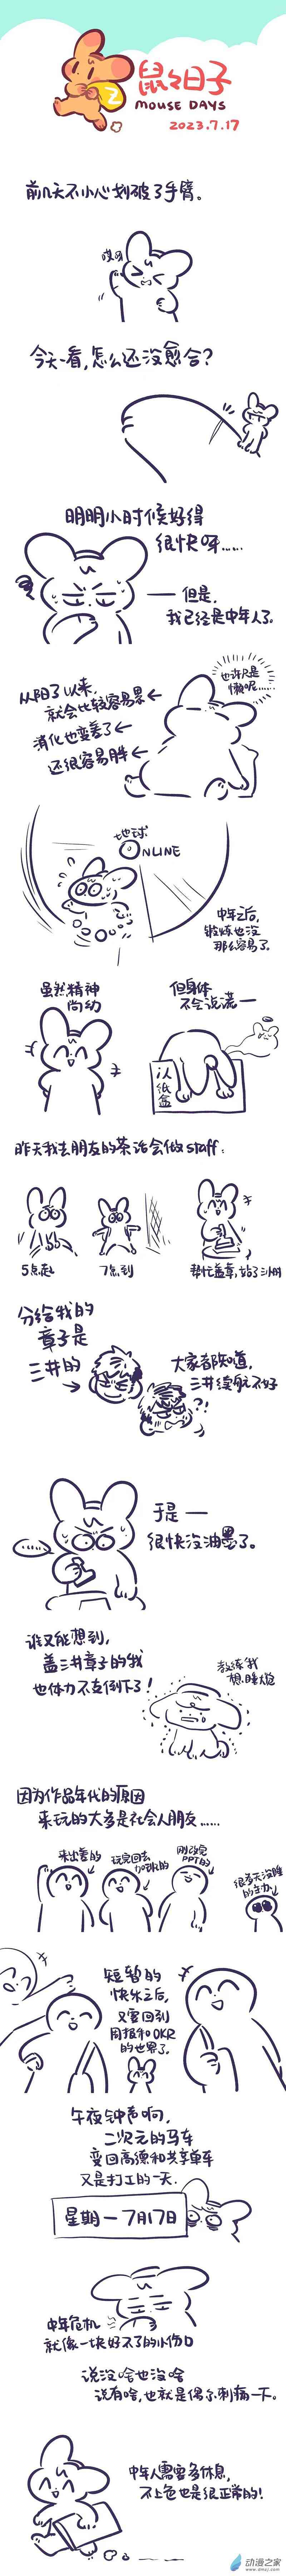 鼠鼠日子
MOUSE DAYS
2023.7.17
前几天不小心划破了手臂。
哎呀
今天一看,怎么还没愈合?
明明小时候好得
很快呀……
——但是,
我已经是中年人了。
也许只是
懒呢……
从阳了以来,
就会比较容易累←
消化也变差了←
还很容易胖←
地球
ONLINE
中年之后,
锻炼也没
那么容易了。
虽然精神
尚幼
但身体
不会说谎一
认
纸
盒
昨天我去朋友的茶话会做staff:
5点走
7点到
帮忙盖章,站了
分给我的
章子是
三井的
大家都知道,
三井续航不好
?!
于是——
很快没油墨了。
谁又能想到,
盖三井章子的我
也体力不支倒下了!
教练我
想睡觉
因为作品年代的原因
来玩的大多是社会人朋友……
来出差的
玩完回去
加班的
刚改完
PPT的
很多天没睡
的主办
短暂的
快乐之后,
又要回到
周报和OKR
的世界了。
午夜钟声响,
二次元的马车
变回高德和共享单车
又是打工的一天.
星期一7月17日
中年危机
就像一块好不了的小伤口
说没啥也没啥
说有啥,也就是偶尔刺痛一下。
中年人需要多休息,
不上色也是很正常的!
动漫之家
www.dmzj.com